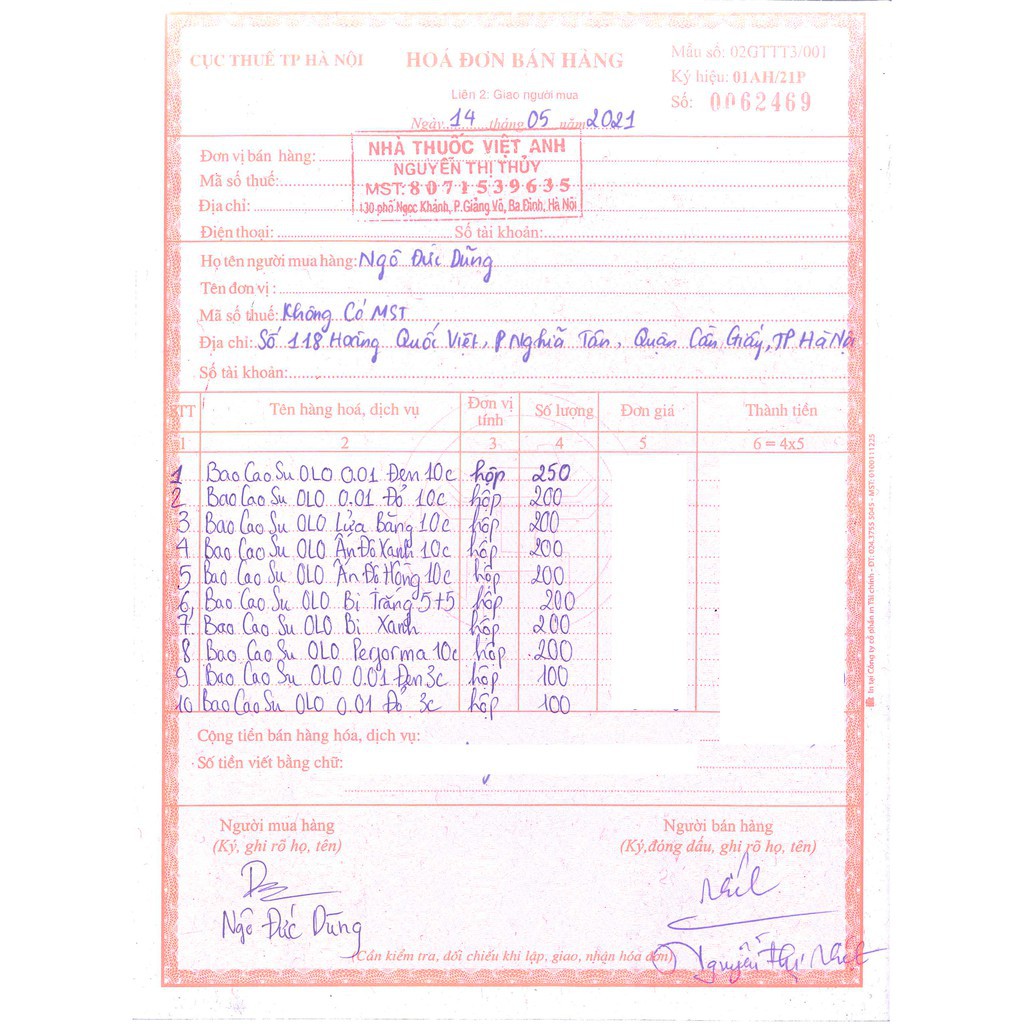 CỤC THUẾ TP HÀ NỘI
HOÁ ĐƠN BÁN HÀNG
Mẫu số: 02GTTT3/001
Ký hiệu: 01AH/21P
Liên 2: Giao người mua
Số: 0062469
Ngày 14 tháng 05 năm 2021
NHÀ THUỐC VIỆT ANH
NGUYỄN THỊ THỦY
MST: 8071539635
130 phố Ngọc Khánh, P.Giảng Võ, Ba Đình, Hà Nội
Đơn vị bán hàng:
Mã số thuế:
Địa chỉ:
Điện thoại: Số tài khoản:
Họ tên người mua hàng: Ngô Đức Dũng
Tên đơn vị:
Mã số thuế: Không Có MST
Địa chỉ: Số 118 Hoàng Quốc Việt, P Nghĩa Tân, Quận Cầu Giấy, TP Hà Nội
Số tài khoản:
STT Tên hàng hoá, dịch vụ Đơn vị tính Số lượng Đơn giá Thành tiền
1 2 3 4 5 6 = 4x5
1 Bao Cao Su OLO 0.01 Đen 10c hộp 250
2 Bao Cao Su OLO 0.01 Đỏ 10c hộp 200
3 Bao Cao Su OLO Lửa Băng 10c hộp 200
4 Bao Cao Su OLO Ấn Độ Xanh 10c hộp 200
5 Bao Cao Su OLO Ấn Độ Hồng 10c hộp 200
6 Bao Cao Su OLO Bi Trắng 5+5 hộp 200
7 Bao Cao Su OLO Bi Xanh hộp 200
8 Bao Cao Su OLO Performa 10c hộp 200
9 Bao Cao Su OLO 0.01 Đen 3c hộp 100
10 Bao Cao Su OLO 0.01 Đỏ 3c hộp 100
Cộng tiền bán hàng hóa, dịch vụ:
Số tiền viết bằng chữ:
Người mua hàng
(Ký, ghi rõ họ, tên)
Người bán hàng
(Ký,đóng dấu, ghi rõ họ, tên)
Ngô Đức Dũng
Nguyễn Thị Nhiệt
(Cần kiểm tra, đối chiếu khi lập, giao, nhận hóa đơn)